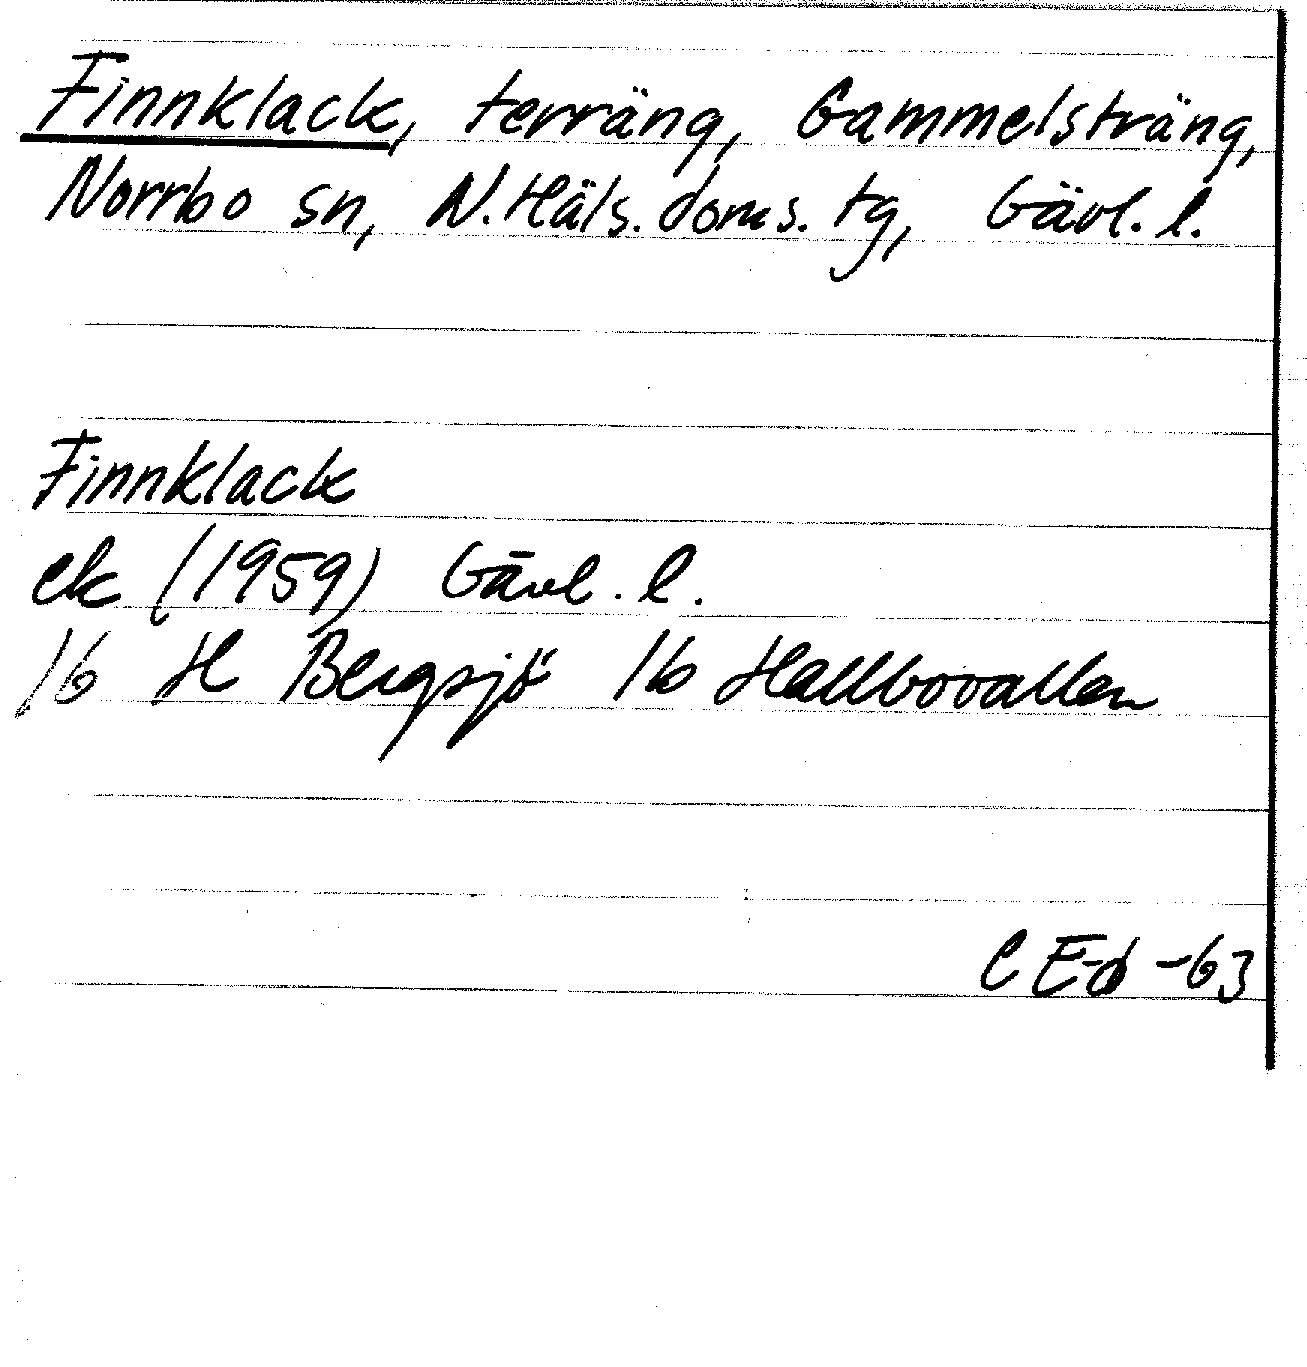 Finnklack, terräng, Gammelsträng,
Norrbo sn, N.Häls.doms.tg, Gävl.l.
Finnklack
ek (1959) Gävl.l.
16 H Bergsjö 16 Hallbovallen
C E-d -63